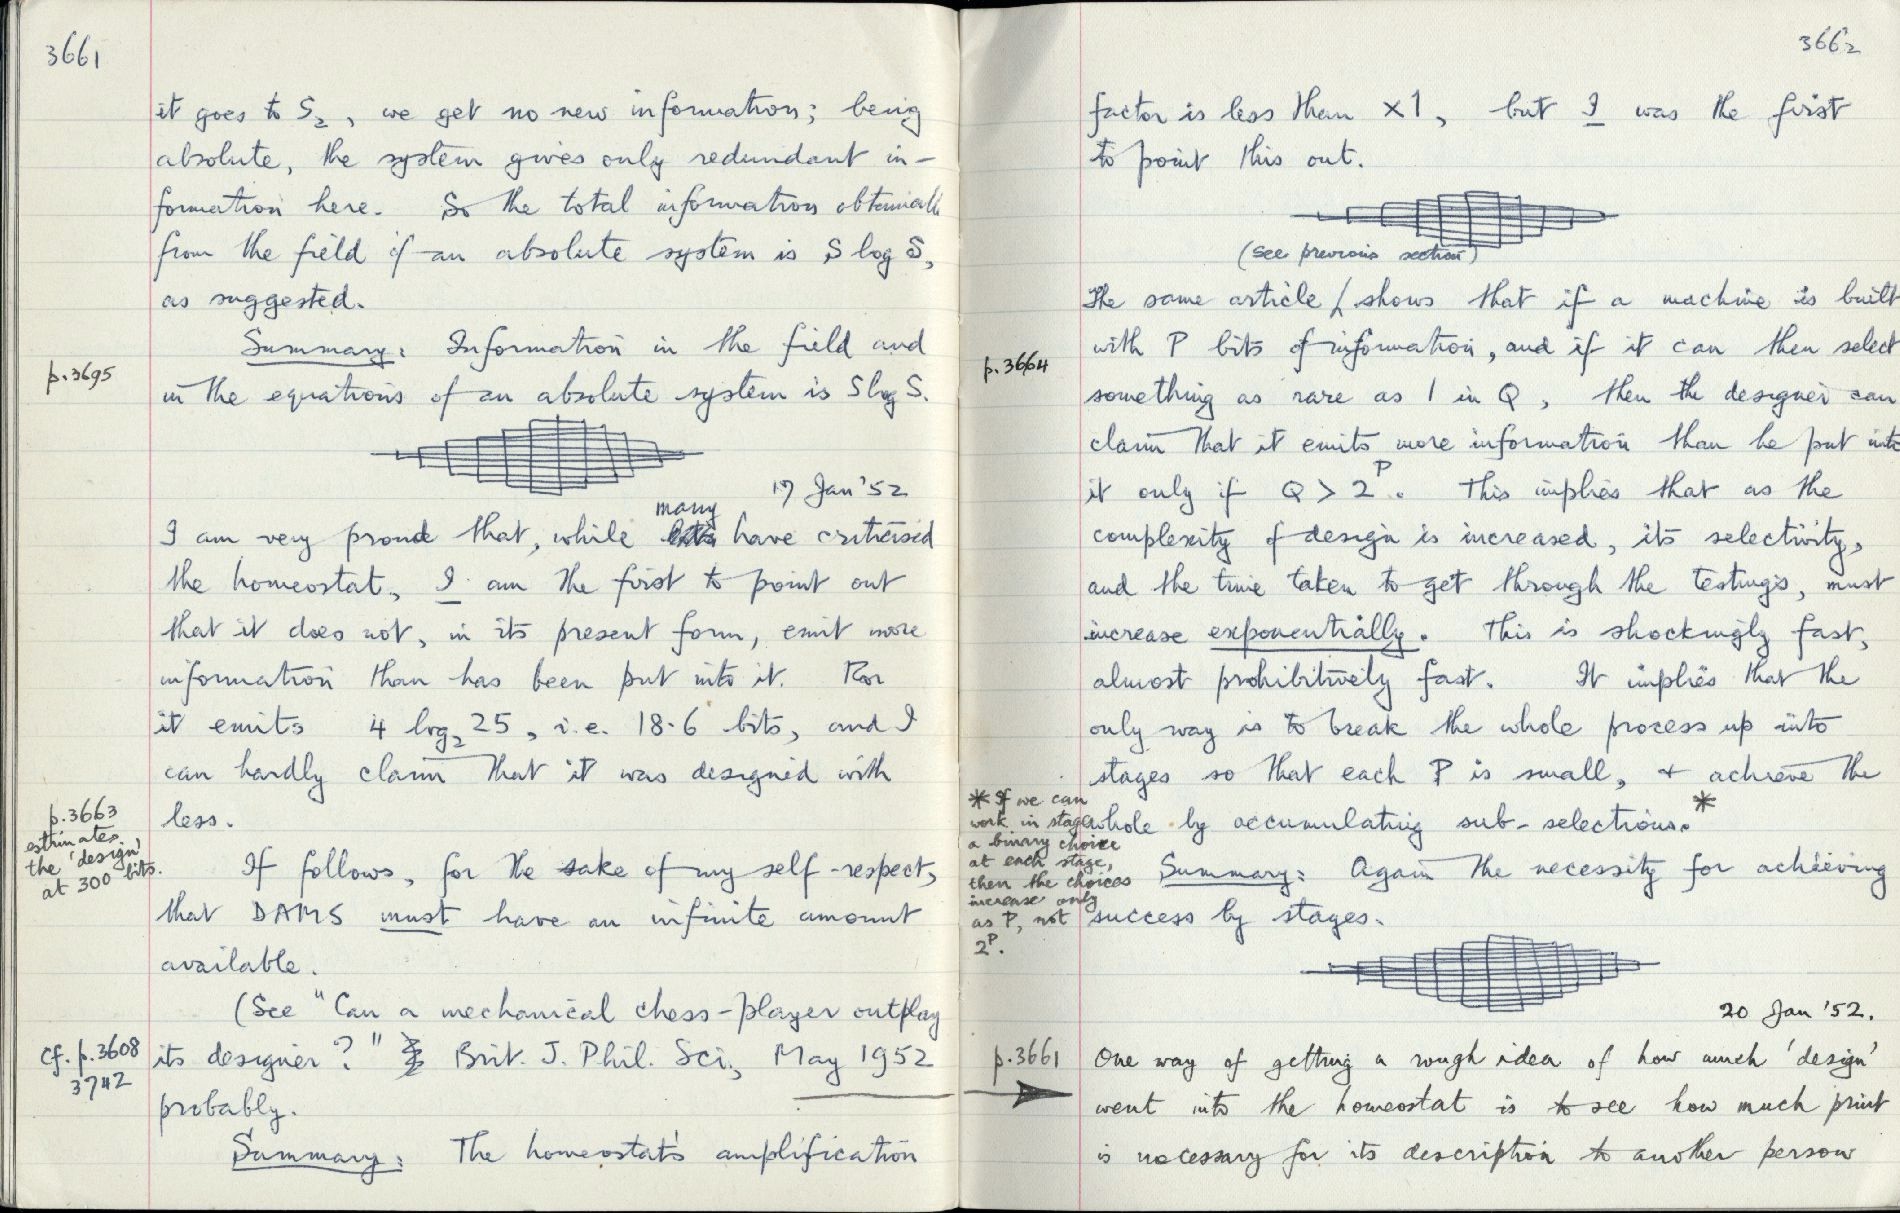 3661
it goes to S₂, we get no new information; being
absolute, the system gives only redundant in-
formation here. So the total information obtainable
from the field of an absolute system is S log S,
as suggested.
Summary: Information in the field and
p.3695
in the equations of an absolute system is S log S.
17 Jan '52
many
I am very proud that, while have criticised
the homeostat, I am the first to point out
that it does not, in its present form, emit more
information than has been put into it. For
it emits 4 log₂ 25, i.e. 18·6 bits, and I
can hardly claim that it was designed with
less.
p.3663
estimates
the 'design'
at 300 bits.
If follows, for the sake of my self-respect,
that DAMS must have an infinite amount
available.
(See "Can a mechanical chess-player outplay
cf. p.3608
3742
its designer?" Brit. J. Phil. Sci., May 1952
probably.
Summary: The homeostat's amplification
3662
factor is less than ×1, but I was the first
to point this out.
(See previous section)
The same article / shows that if a machine is built
p.3664
with P bits of information, and if it can then select
something as rare as 1 in Q, then the designer can
claim that it emits more information than he put into
it only if Q > 2ᴾ. This implies that as the
complexity of design is increased, its selectivity,
and the time taken to get through the testings, must
increase exponentially. This is shockingly fast,
almost prohibitively fast. It implies that the
only way is to break the whole process up into
stages so that each P is small, + achieve the
whole by accumulating sub-selections.*
* If we can
work in stages
a binary choice
at each stage,
then the choices
increase only
as P, not
2ᴾ.
Summary: Again the necessity for achieving
success by stages.
20 Jan '52.
p.3661
One way of getting a rough idea of how much 'design'
went into the homeostat is to see how much print
is necessary for its description to another person